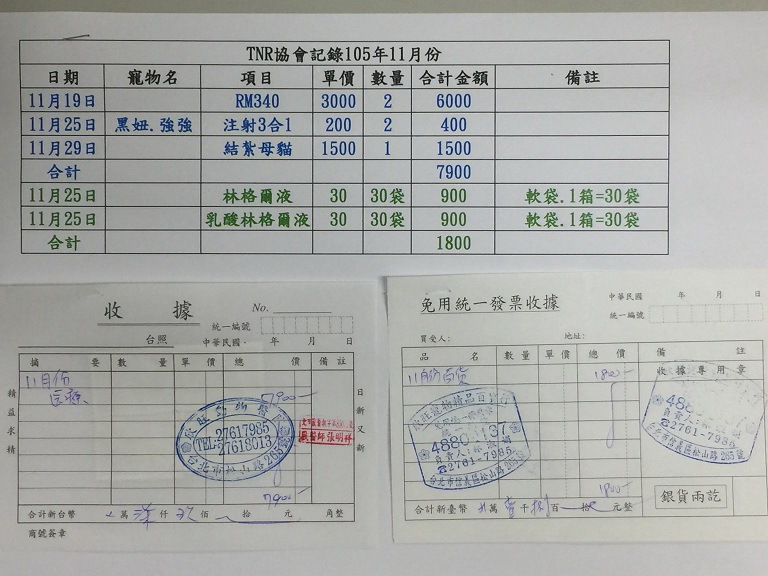 TNR協會記錄105年11月份
日期 寵物名 項目 單價 數量 合計金額 備註
11月19日 RM340 3000 2 6000
11月25日 黑妞.強強 注射3合1 200 2 400
11月29日 結紮母貓 1500 1 1500
合計 7900
11月25日 林格爾液 30 30袋 900 軟袋.1箱=30袋
11月25日 乳酸林格爾液 30 30袋 900 軟袋.1箱=30袋
合計 1800
收據 No.
統一編號
台照 中華民國 年 月 日
摘要 數量 單價 總價 備註
11月份 7900
醫療
欣旺動物醫
TEL: 27617985
27618013
台北市松山路265號
獸醫師張明祥
精益求精
日新又新
7900
合計新台幣 萬 柒仟 玖佰 拾 元 角整
商號簽章
免用統一發票收據
中華民國 年 月 日
統一編號
買受人: 地址:
品名 數量 單價 總價 備註
11月份百貨 1800 收據專用章
欣旺寵物精品百貨
4880 137
負責人:
2761-7985
台北市信義區松山路265號
488
負責人:
2761-7985
台北市信義區松山路265號
1800
銀貨兩訖
合計新臺幣 萬 壹千 捌百 拾 元整